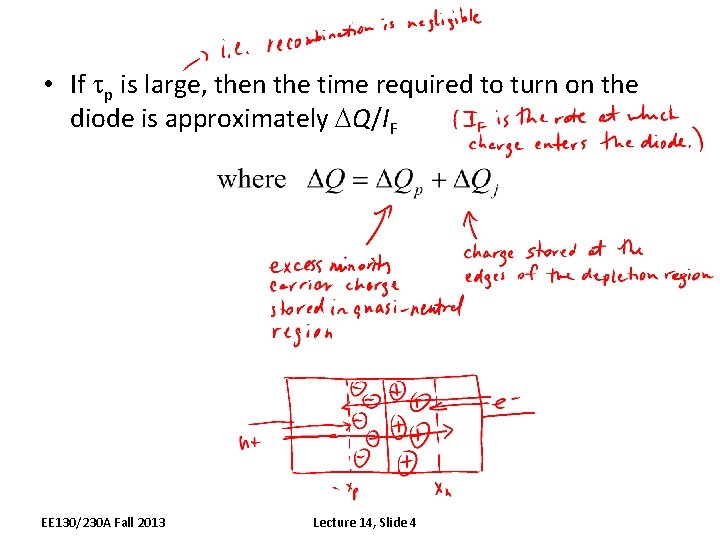 i.e. recombination is negligible
• If τp is large, then the time required to turn on the
diode is approximately ΔQ/IF
(IF is the rate at which
charge enters the diode.)
where ΔQ = ΔQp + ΔQj
excess minority
carrier charge
stored in quasi-neutral
region
charge stored at the
edges of the depletion region
⊖ ⊖ ⊕
⊖ ⊕ e-
⊖ ⊕
h+ ⊖ ⊕
⊖ ⊕
-xp xn
EE130/230A Fall 2013 Lecture 14, Slide 4